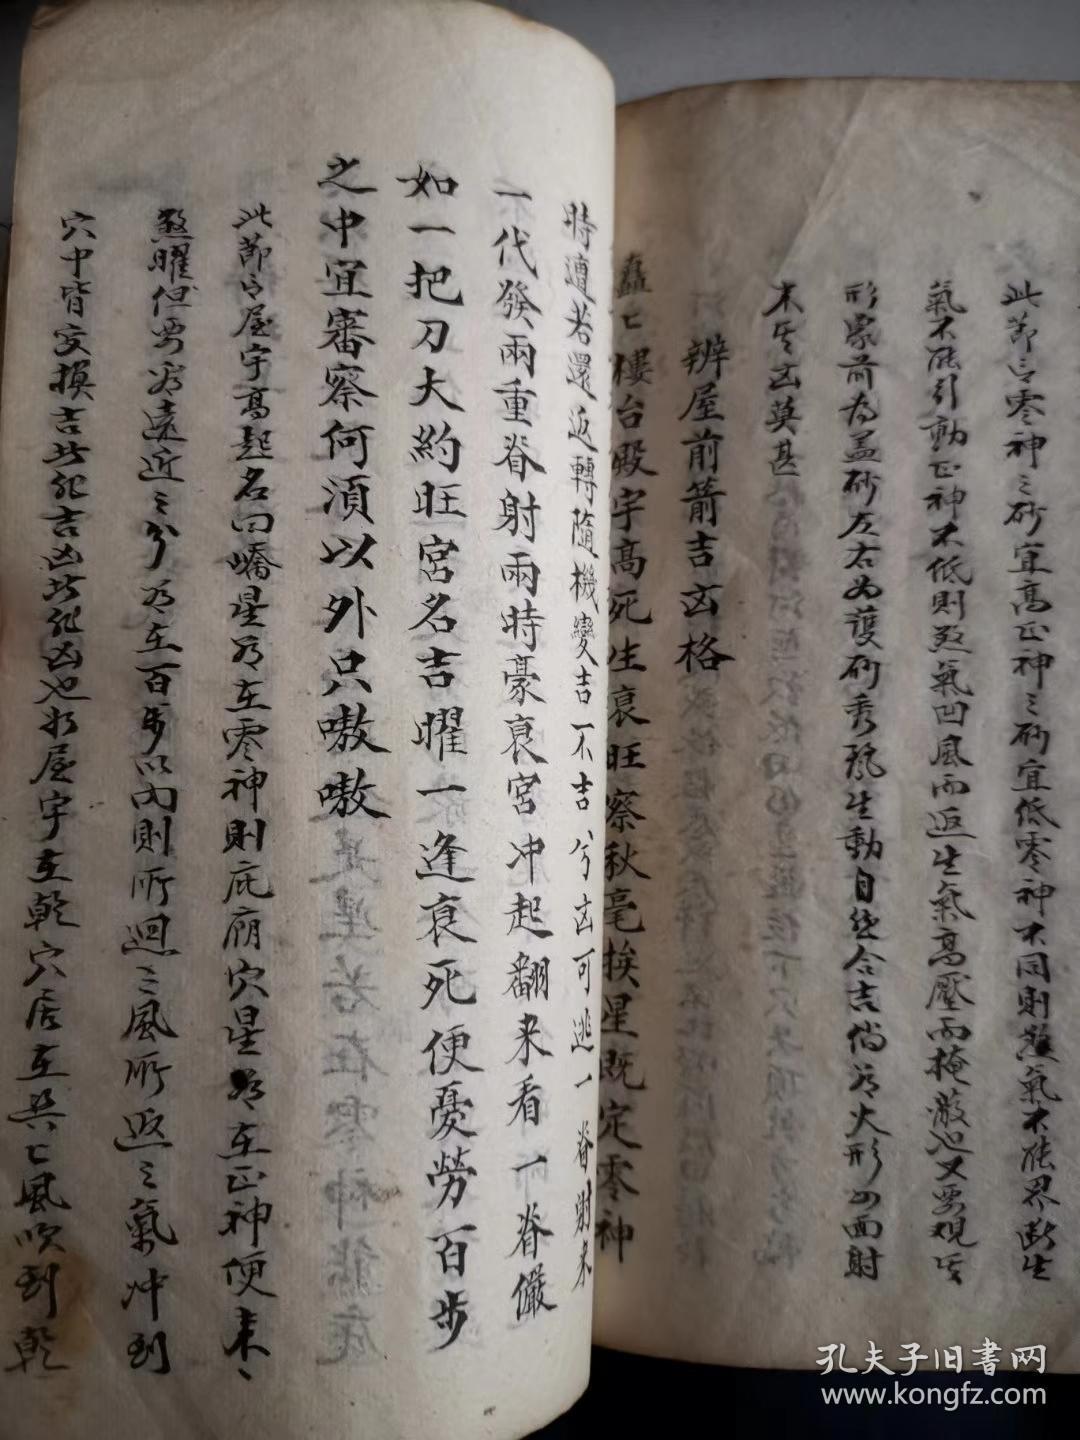 此節言零神之砂宜高正神之砂宜低零神不同則煞氣不能界斷生
氣不能引動正神不低則煞氣凹風而返生氣高壓而掩蔽也又要观其
形象前为盖砂左右为護砂秀氣生動自然合吉倘为火形四面射
来其凶莫甚
辨屋前箭吉凶格
矗〻樓台殿宇高死生衰旺察秋毫挨星既定零神
時遭若還返轉隨機變吉一不吉兮凶可逃一脊射来
一代發兩重脊射兩時豪衰宮冲起翻来看一脊儼
如一把刀大約旺宮名吉曜一逢衰死便憂勞百步
之中宜審察何須以外只嗷嗷
此節言屋宇高起名曰嶠星为在零神則庇廕穴星为在正神便来〻
煞曜但要为遠近之分为在百步以內則所迴之風所返之氣冲到
穴中皆交換吉此非吉凶此非凶也如屋宇在乾穴居在巽〻風吹到乾
孔夫子旧書网
www.kongfz.com